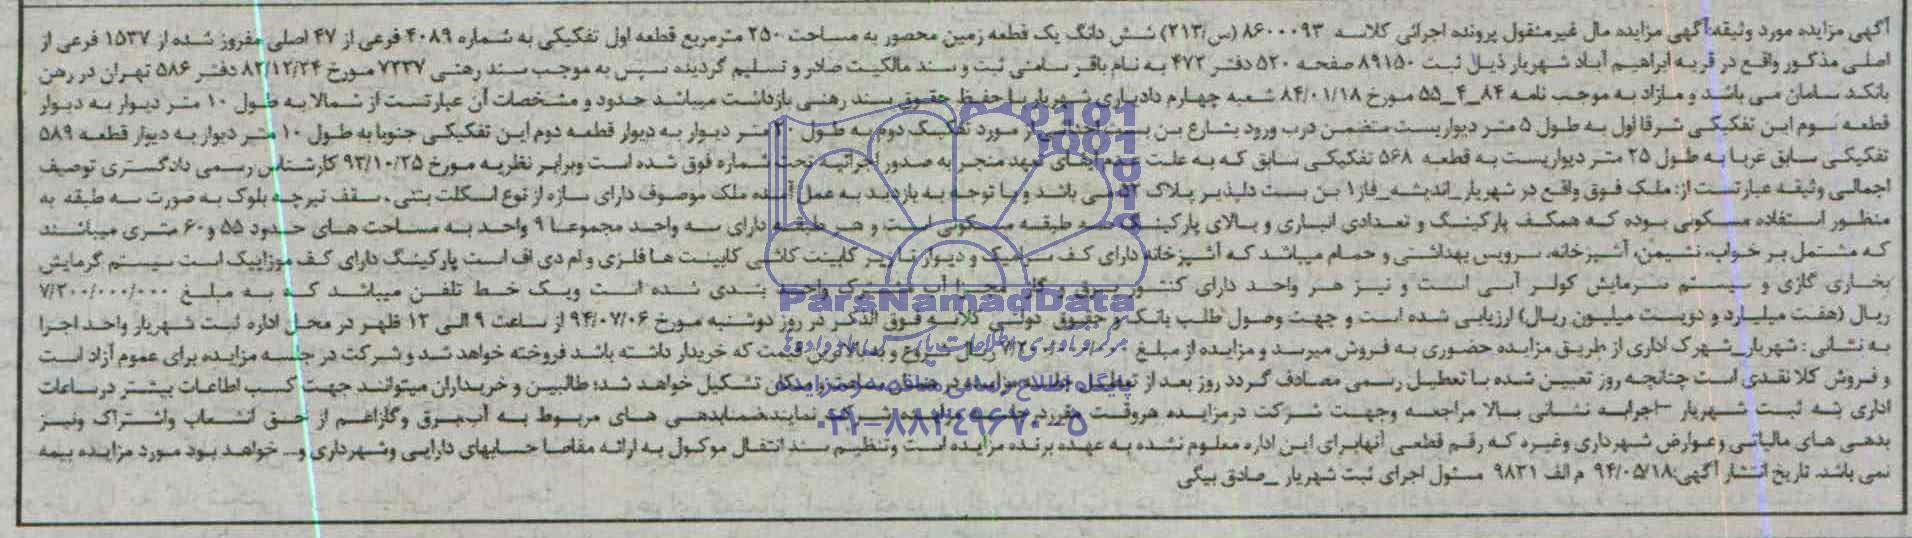 آگهی مزایده مورد وثیقه:آگهی مزایده مال غیرمنقول پرونده اجرائی کلاسه ۸۶۰۰۰۹۳ (س/۲۱۳) شش دانگ یک قطعه زمین محصور به مساحت ۲۵۰ مترمربع قطعه اول تفکیکی به شماره ۴۰۸۹ فرعی از ۴۷ اصلی مفروز شده از ۱۵۳۷ فرعی از
اصلی مذکور واقع در قریه ابراهیم آباد شهریار ذیل ثبت ۸۹۱۵۰ صفحه ۵۲۰ دفتر ۴۷۲ به نام باقر سامنی ثبت و سند مالکیت صادر و تسلیم گردیده سپس به موجب سند رهنی ۷۲۳۷ مورخ ۸۲/۱۲/۲۴ دفتر ۵۸۶ تهران در رهن
بانک سامان می باشد و مازاد به موجب نامه ۸۴_۴_۵۵ مورخ ۸۴/۰۱/۱۸ شعبه چهارم دادیاری شهریار با حفظ حقوق سند رهنی بازداشت میباشد حدود و مشخصات آن عبارتست از شمالا به طول ۱۰ متر دیوار به دیوار
قطعه سوم این تفکیکی شرقا اول به طول ۵ متر دیواریست متضمن درب ورود بشارع بن بست احداثی از مورد تفکیک دوم به طول ۲۰ متر دیوار به دیوار قطعه دوم این تفکیکی جنوبا به طول ۱۰ متر دیوار به دیوار قطعه ۵۸۹
تفکیکی سابق غربا به طول ۲۵ متر دیواریست به قطعه ۵۶۸ تفکیکی سابق که به علت عدم ایفای تعهد منجر به صدور اجرائیه تحت شماره فوق شده است وبرابر نظریه مورخ ۹۳/۱۰/۲۵ کارشناس رسمی دادگستری توصیف
اجمالی وثیقه عبارتست از: ملک فوق واقع در شهریار_اندیشه_فاز۱ بن بست دلپذیر پلاک ۵۲ می باشد و با توجه به بازدید به عمل آمده ملک موصوف دارای سازه از نوع اسکلت بتنی، سقف تیرچه بلوک به صورت سه طبقه به
منظور استفاده مسکونی بوده که همکف پارکینگ و تعدادی انباری و بالای پارکینگ سه طبقه مسکونی است و هر طبقه دارای سه واحد مجموعا ۹ واحد به مساحت های حدود ۵۵ و۶۰ متری میباشند
که مشتمل بر خواب، نشیمن، آشپزخانه، سرویس بهداشتی و حمام میباشد که آشپزخانه دارای کف سرامیک و دیوار تا زیر کابینت کاشی کابینت ها فلزی و ام دی اف است پارکینگ دارای کف موزاییک است سیستم گرمایش
بخاری گازی و سیستم سرمایش کولر آبی است و نیز هر واحد دارای کنتور برق و گاز مجزا آب مشترک واحد بندی شده است ویک خط تلفن میباشد که به مبلغ ۷/۲۰۰/۰۰۰/۰۰۰
ریال (هفت میلیارد و دویست میلیون ریال) ارزیابی شده است و جهت وصول طلب بانک و حقوق دولتی کلاسه فوق الذکر در روز دوشنبه مورخ ۹۴/۰۷/۰۶ از ساعت ۹ الی ۱۲ ظهر در محل اداره ثبت شهریار واحد اجرا
به نشانی : شهریار_شهرک اداری از طریق مزایده حضوری به فروش میرسد و مزایده از مبلغ ۷/۲۰۰/۰۰۰/۰۰۰ ریال شروع و به بالاترین قیمت که خریدار داشته باشد فروخته خواهد شد و شرکت در جلسه مزایده برای عموم آزاد است
و فروش کلا نقدی است چنانچه روز تعیین شده با تعطیل رسمی مصادف گردد روز بعد از تعطیل جلسه مزایده در همان ساعت و مکان تشکیل خواهد شد؛ طالبین و خریداران میتوانند جهت کسب اطلاعات بیشتر درساعات
اداری به ثبت شهریار –اجرابه نشانی بالا مراجعه وجهت شرکت درمزایده هروقت مقرردر جلسه مزایده شرکت نمایندضمنابدهی های مربوط به آب،برق وگازاعم از حق انشعاب واشتراک ونیز
بدهی های مالیاتی وعوارض شهرداری وغیره که رقم قطعی آنهابرای این اداره معلوم نشده به عهده برنده مزایده است وتنظیم سند انتقال موکول به ارائه مفاصا حسابهای دارایی وشهرداری و... خواهد بود مورد مزایده بیمه
نمی باشد. تاریخ انتشار آگهی:۹۴/۰۵/۱۸ م الف ۹۸۳۱ مسئول اجرای ثبت شهریار _صادق بیگی
ParsNamadData
مرکز فرآوری اطلاعات پارس نماد داده ها
پایگاه اطلاع رسانی مناقصه و مزایده
۰۲۱-۸۸۳۴۹۶۷۰-۵